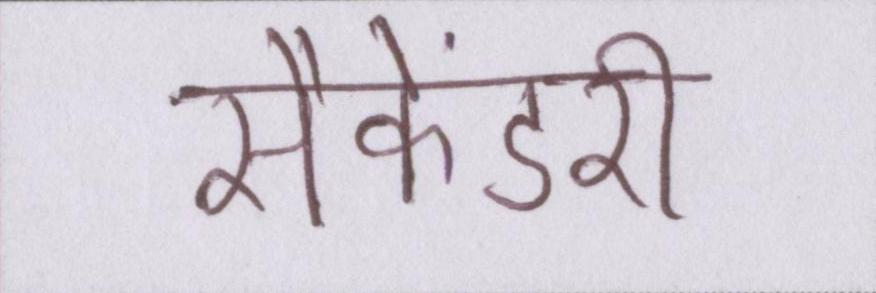 सैकेंडरी